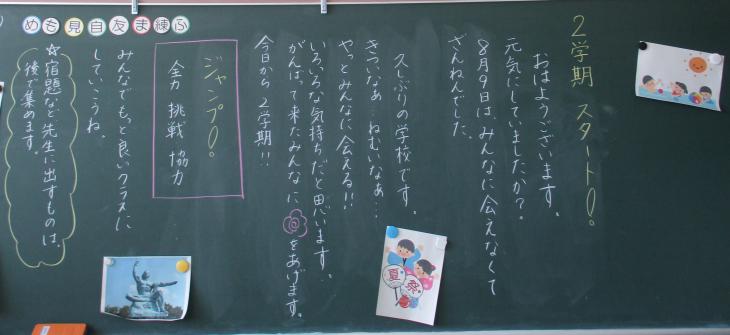 2学期 スタート!
おはようございます。
元気にしていましたか?
8月9日は、みんなに会えなくて
ざんねんでした。
久しぶりの学校です。
きついなぁ…ねむいなぁ…
やっとみんなに会える!!
いろいろな気持ちだと思います。
がんばって来たみんなに@をあげます。
今日から2学期!!
ジャンプ!
全力 挑戦 協力
みんなでもっと良いクラスに
していこうね。
☆宿題など先生に出すものは、
後で集めます。
めも見自友ま練ふ
夏祭